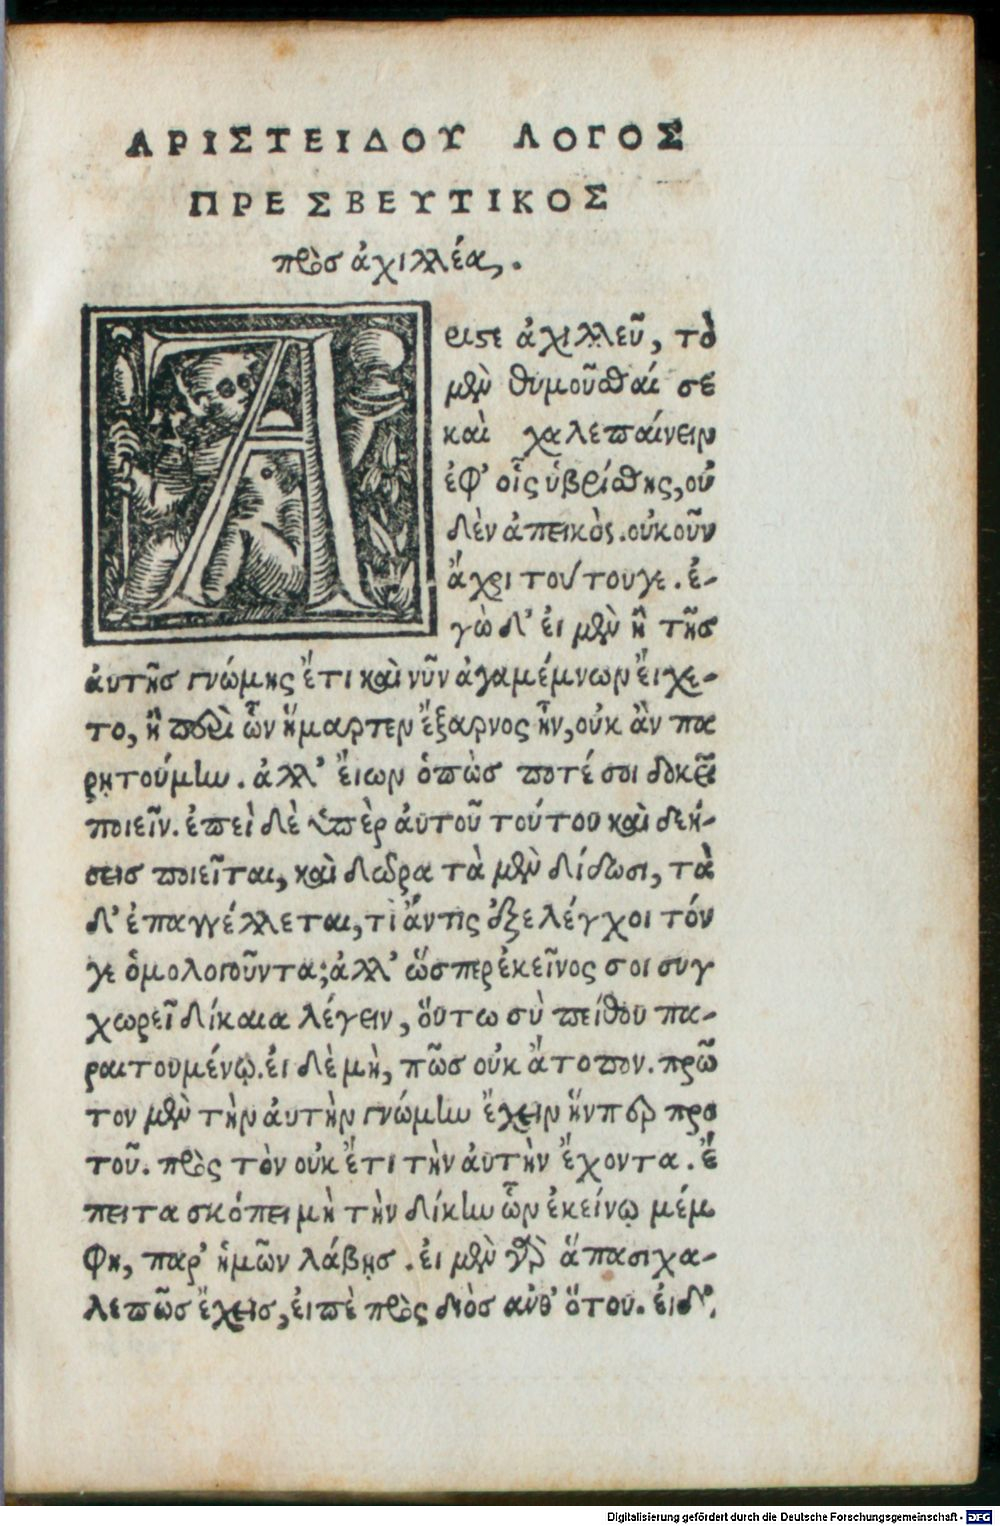 ΑΡΙΣΤΕΙΔΟΥ ΛΟΓΟΣ
ΠΡΕΣΒΕΥΤΙΚΟΣ
πρὸσ ἀχιλλέα,.
Α
ριστε ἀχιλλεῦ, τὸ
μὲν θυμοῦσθαί σε
καὶ χαλεπαίνειν
ἐφ' οἷς ὑβρίσθης, οὐ
δὲν ἀπεικὸς. οὐκοῦν
ἄχρι τούτου γε. ἐ-
γὼ δ' εἰ μὲν ἢ τῆσ
ἀυτῆσ γνώμης ἔτι καὶ νῦν ἀγαμέμνων ἔιχε-
το, ἢ περὶ ὧν ἥμαρτεν ἔξαρνος ἦν, οὐκ ἂν πα
ρῃτούμην. ἀλλ' ἔιων ὁπὼσ ποτέ σοι δοκεῖ
ποιεῖν. ἐπεὶ δὲ ὑπὲρ ἀυτοῦ τούτου καὶ δεή-
σεισ ποιεῖται, καὶ δωρα τὰ μὲν δίδωσι, τὰ
δ' ἐπαγγέλλεται, τί ἄντις ἐξελέγχοι τόν
γε ὁμολογοῦντα; ἀλλ' ὥσπερ ἐκεῖνος σοι συγ
χωρεῖ δίκαια λέγειν, ὅυτω σὺ πείθου πα-
ραιτουμένῳ. εἰ δὲ μὴ, πῶσ οὐκ ἄτοπον. πρῶ
τον μὲν τὴν ἀυτὴν γνώμην ἔχειν ἥνπερ προ
τοῦ. πρὸς τὸν οὐκ ἔτι τὴν ἀυτὴν ἔχοντα. ἔ
πειτα σκόπει μὴ τὴν δίκην ὧν ἐκείνῳ μέμ
φη, παρ' ἡμῶν λάβῃσ. εἰ μὲν γὰρ ἅπασι χα-
λεπῶσ ἔχεισ, εἰπὲ πρὸς διὸσ ἀνθ' ὅτου. εἰ δ',
Digitalisierung gefördert durch die Deutsche Forschungsgemeinschaft - DFG